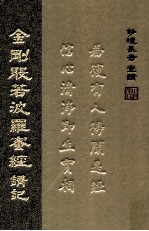 妙境長老 宣講
若復有人得聞是經
信心清淨即生實相
金剛般若波羅蜜經 講記